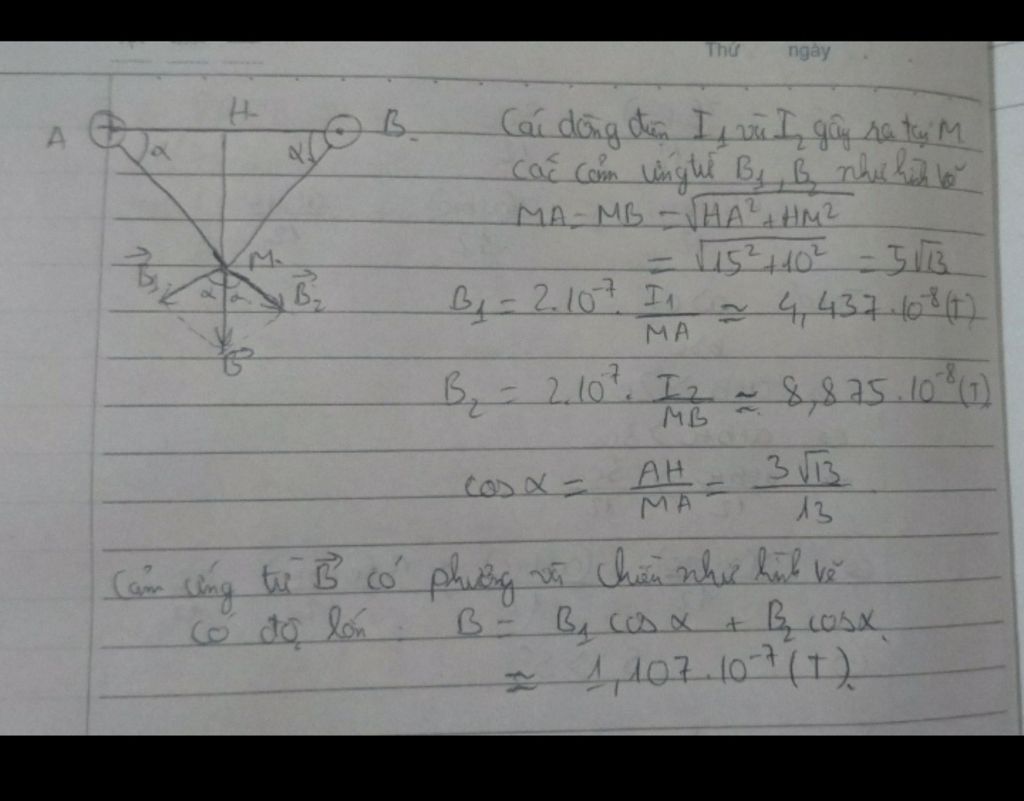 Thứ ngày
A H B.
α α
M.
B₁ α α B₂
B
Các dòng điện I₁ và I₂ gây ra tại M
các cảm ứng từ B₁, B₂ như hình vẽ
MA = MB = √(HA² + HM²)
= √(15² + 10²) = 5√13
B₁ = 2.10⁻⁷ . I₁/MA ≈ 4,437.10⁻⁸ (T)
B₂ = 2.10⁻⁷ . I₂/MB ≈ 8,875.10⁻⁸ (T)
cosα = AH/MA = 3√13/13
Cảm ứng từ B có phương và chiều như hình vẽ
có độ lớn: B = B₁ cosα + B₂ cosα.
≈ 1,107.10⁻⁷ (T).